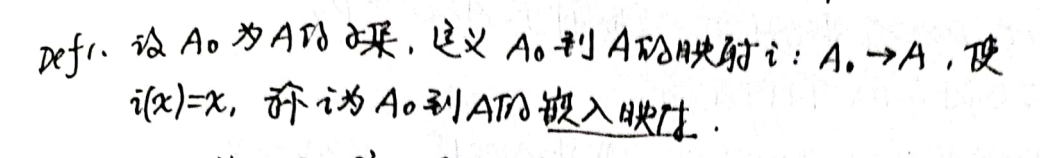 Def1. 设 A₀ 为 A 的子集, 定义 A₀ 到 A 的映射 i: A₀→A, 使
i(x)=x, 称 i 为 A₀ 到 A 的嵌入映射.